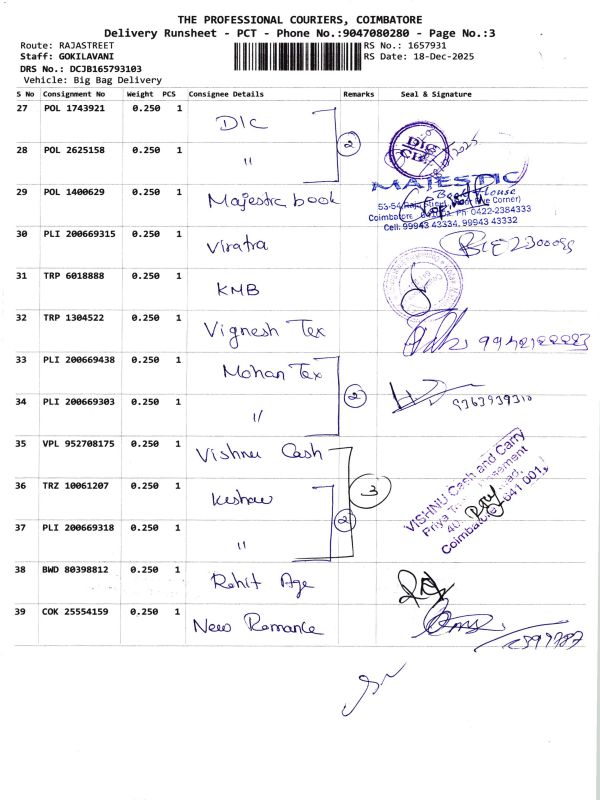 THE PROFESSIONAL COURIERS, COIMBATORE
Delivery Runsheet - PCT - Phone No.:9047080280 - Page No.:3
Route: RAJASTREET
RS No.: 1657931
Staff: GOKILAVANI
RS Date: 18-Dec-2025
DRS No.: DCJB165793103
Vehicle: Big Bag Delivery
S No Consignment No Weight PCS Consignee Details Remarks Seal & Signature
27 POL 1743921 0.250 1 DIC
2
28 POL 2625158 0.250 1 "
DIC
29 POL 1400629 0.250 1 Majestic book
MAJESTIC
Book House
Coimbatore Ph 0422-2384333
Cell: 99943 43334, 99943 43332
30 PLI 200669315 0.250 1 Viratra
31 TRP 6018888 0.250 1 KMB
32 TRP 1304522 0.250 1 Vignesh Tex
33 PLI 200669438 0.250 1 Mohan Tex
2
34 PLI 200669303 0.250 1 "
9363939310
35 VPL 952708175 0.250 1 Vishnu Cash
VISHNU Cash and Carry
Coimbatore 641 001
36 TRZ 10061207 0.250 1 Keshav
3
2
37 PLI 200669318 0.250 1 "
38 BWD 80398812 0.250 1 Rohit Age
39 COK 25554159 0.250 1 New Romance